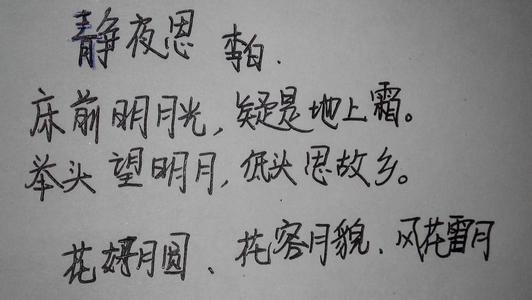 静夜思 李白.
床前明月光,疑是地上霜。
举头望明月,低头思故乡。
花好月圆、花容月貌、风花雪月